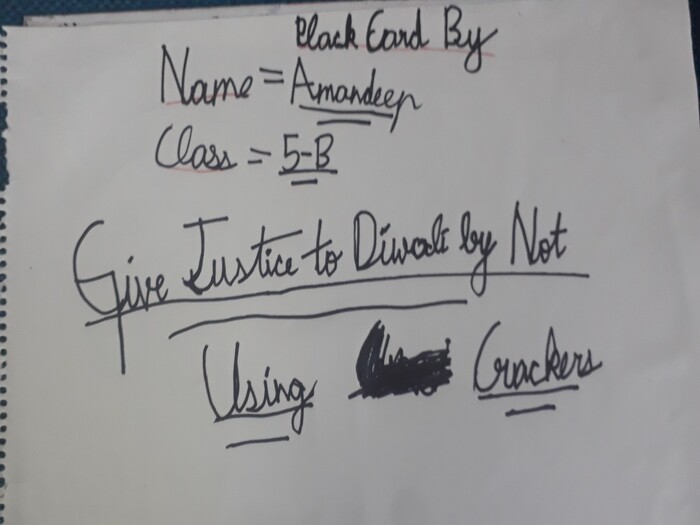 Plack Card By
Name = Amandeep
Class = 5-B
Give Justice to Diwali by Not
Using Crackers